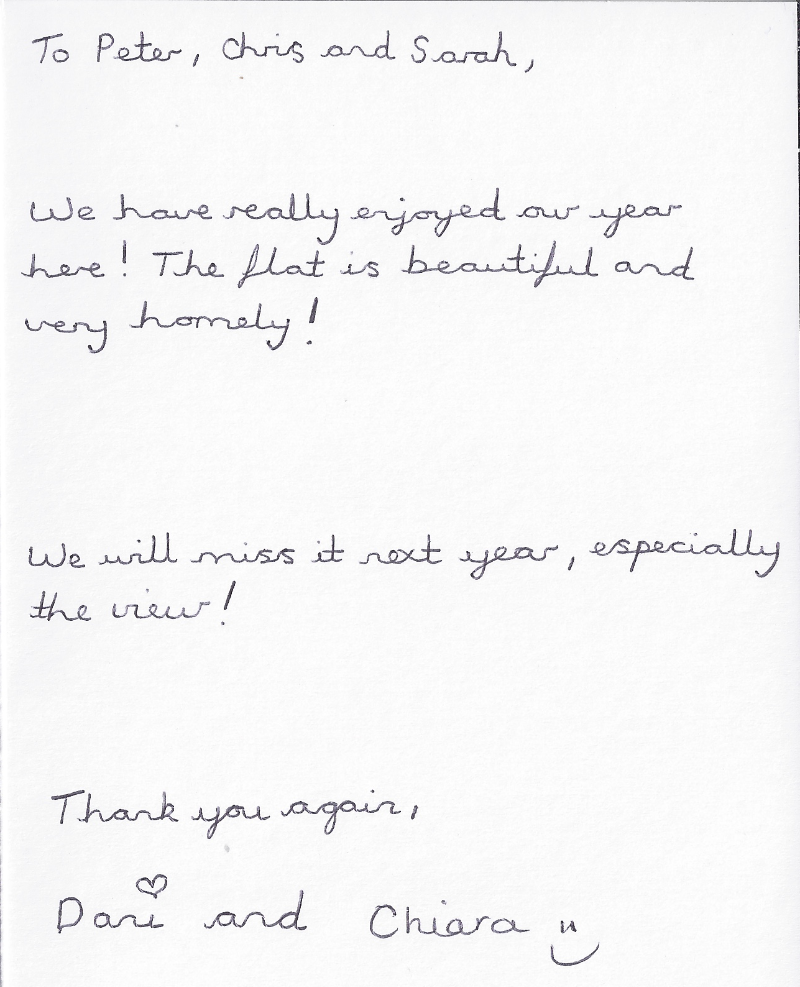 To Peter, Chris and Sarah,
We have really enjoyed our year
here! The flat is beautiful and
very homely!
We will miss it next year, especially
the view!
Thank you again,
Dani and Chiara